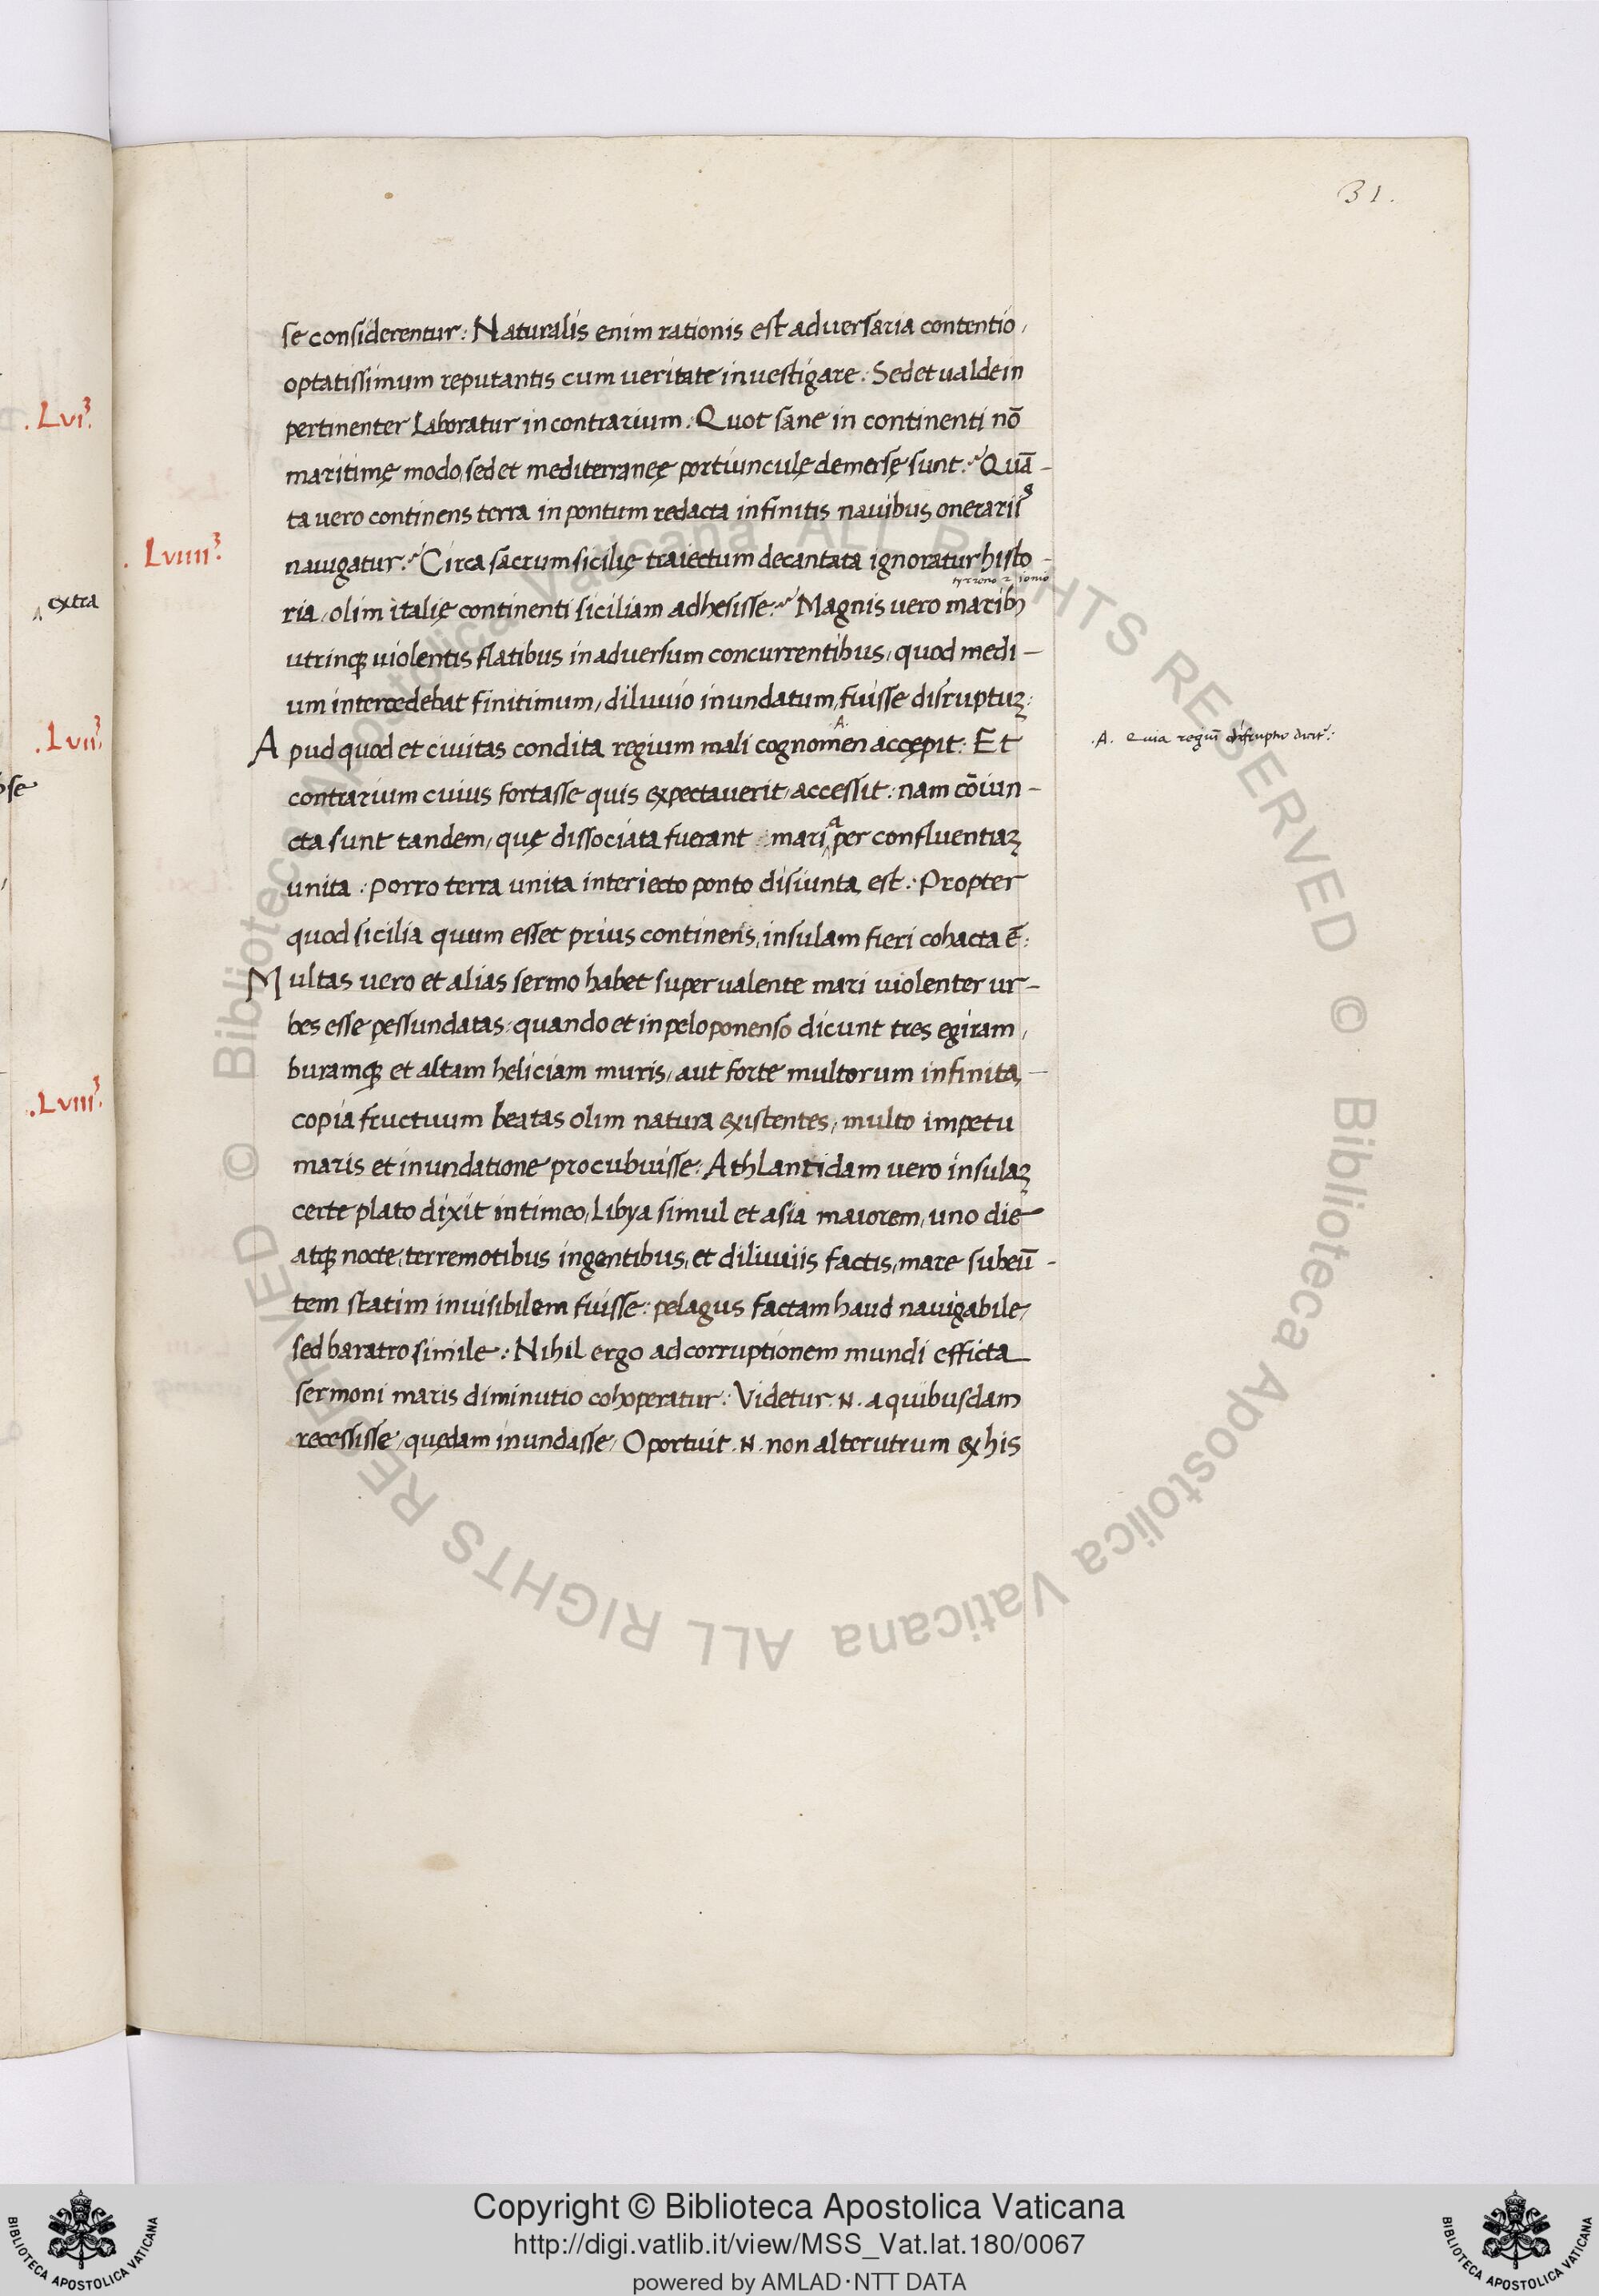 31.
se considerentur: Naturalis enim rationis est adversaria contentio,
optatissimum reputantis cum veritate investigare: Sed et valde in
pertinenter Laboratur in contrarium: Quot sane in continenti nō
maritimę modo, sed et mediterraneę portiunculę demersę sunt: Quā-
ta vero continens terra in pontum redacta infinitis navibus onerariis
.Lviiii.
navigatur: Circa sacrum sicilię traiectum decantata ignoratur histo-
tyrreno ⁊ ionio
ria, olim italię continenti siciliam adhesisse: Magnis vero marib⁊
utrinqꝫ violentis flatibus in adversum concurrentibus, quod medi-
um intercedebat finitimum, diluvio inundatum, fuisse disruptuꝫ:
.A.
Apud quod et civitas condita regium mali cognomen accępit: Et
.A. quia regiū disruptio dicitᷣ:
contrarium cuius fortasse quis expectaverit, accessit: nam cōiun-
cta sunt tandem, quę dissociata fuerant: maria per confluentiaꝫ
unita: porro terra unita interiecto ponto disiunta est: Propter
quod sicilia quum esset prius continens, insulam fieri cohacta ē:
Multas vero et alias sermo habet supervalente mari violenter ur-
bes esse pessundatas: quando et in peloponenso dicunt tres egiram,
buramqꝫ et altam heliciam muris, aut forte multorum infinita
copia fructuum beatas olim natura existentes, multo impetu
maris et inundatione procubuisse: Athlantidam vero insulaꝫ
certe plato dixit in timeo, Libya simul et asia maiorem, uno die
atqꝫ nocte, terremotibus ingentibus, et diluviis factis, mare subeū-
tem statim invisibilem fuisse: pelagus factam haud navigabile,
sed baratro simile: Nihil ergo ad corruptionem mundi efficta
sermoni maris diminutio cohoperatur: Videtur .N. a quibusdam
recessisse, quędam inundasse, Oportuit .N. non alterutrum ex his
.Lvi.
extra
.Lvii.
.Lviii.
© Biblioteca Apostolica Vaticana ALL RIGHTS RESERVED © Biblioteca Apostolica Vaticana ALL RIGHTS RESERVED
BIBLIOTECA APOSTOLICA VATICANA
Copyright © Biblioteca Apostolica Vaticana
http://digi.vatlib.it/view/MSS_Vat.lat.180/0067
powered by AMLAD·NTT DATA
BIBLIOTECA APOSTOLICA VATICANA